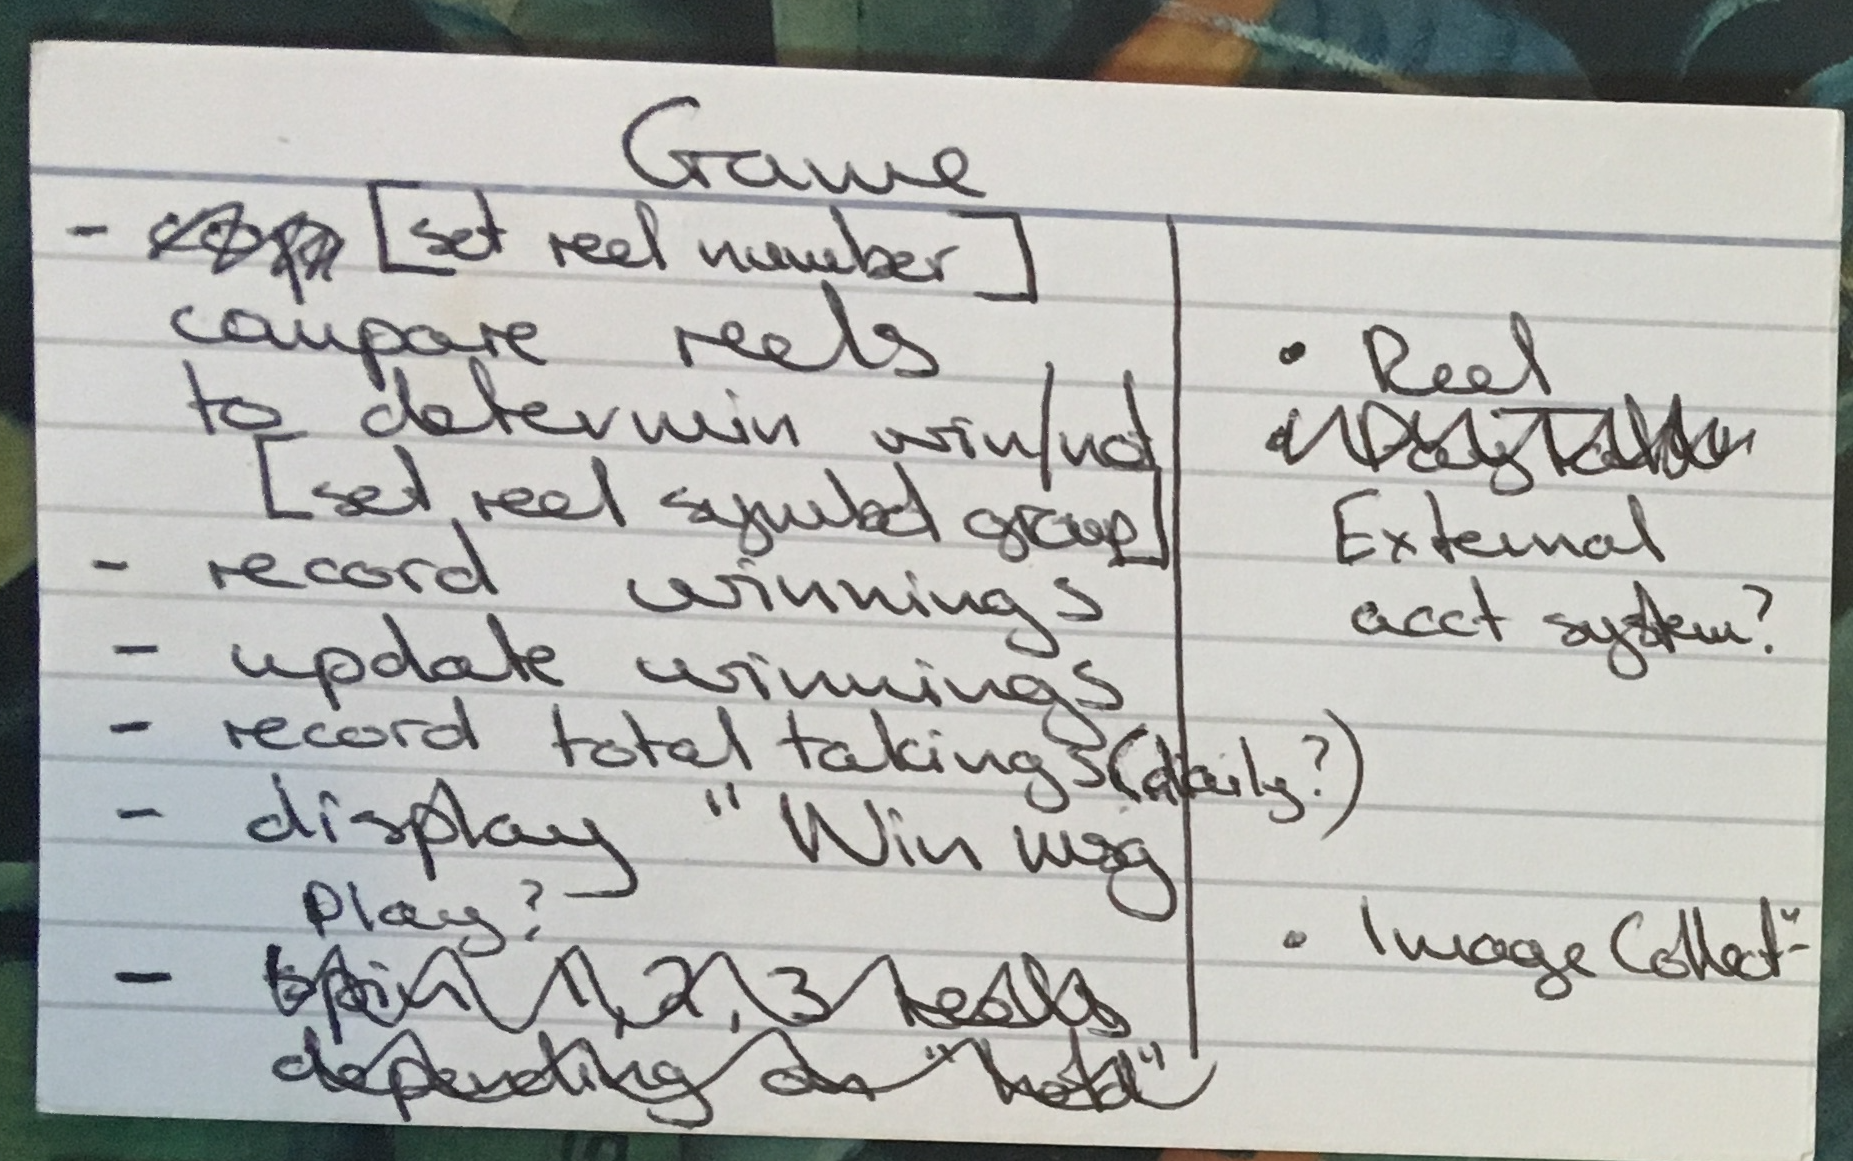 Game
- [set reel number]
compare reels
to determin win/not
[set reel symbol group]
- record winnings
- update winnings
- record total takings (daily?)
- display "Win msg
Play?
- spin 1, 2, 3 reels
depending on "hold"
• Reel
External
acct system?
• Image Collect"